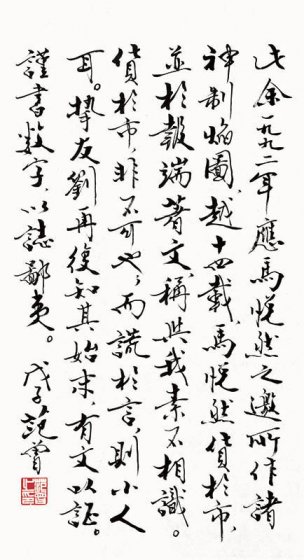 此余一九九二年應馬悅然之邀所作諸
神制焰圖，越十四載，馬悅然貨於市，
並於報端著文，稱與我素不相識。
貨於市，非不可也，而謊於言，則小人
耳。摯友劉再復知其始末，有文以証。
謹書數字，以誌鄙夷。戊子范曾